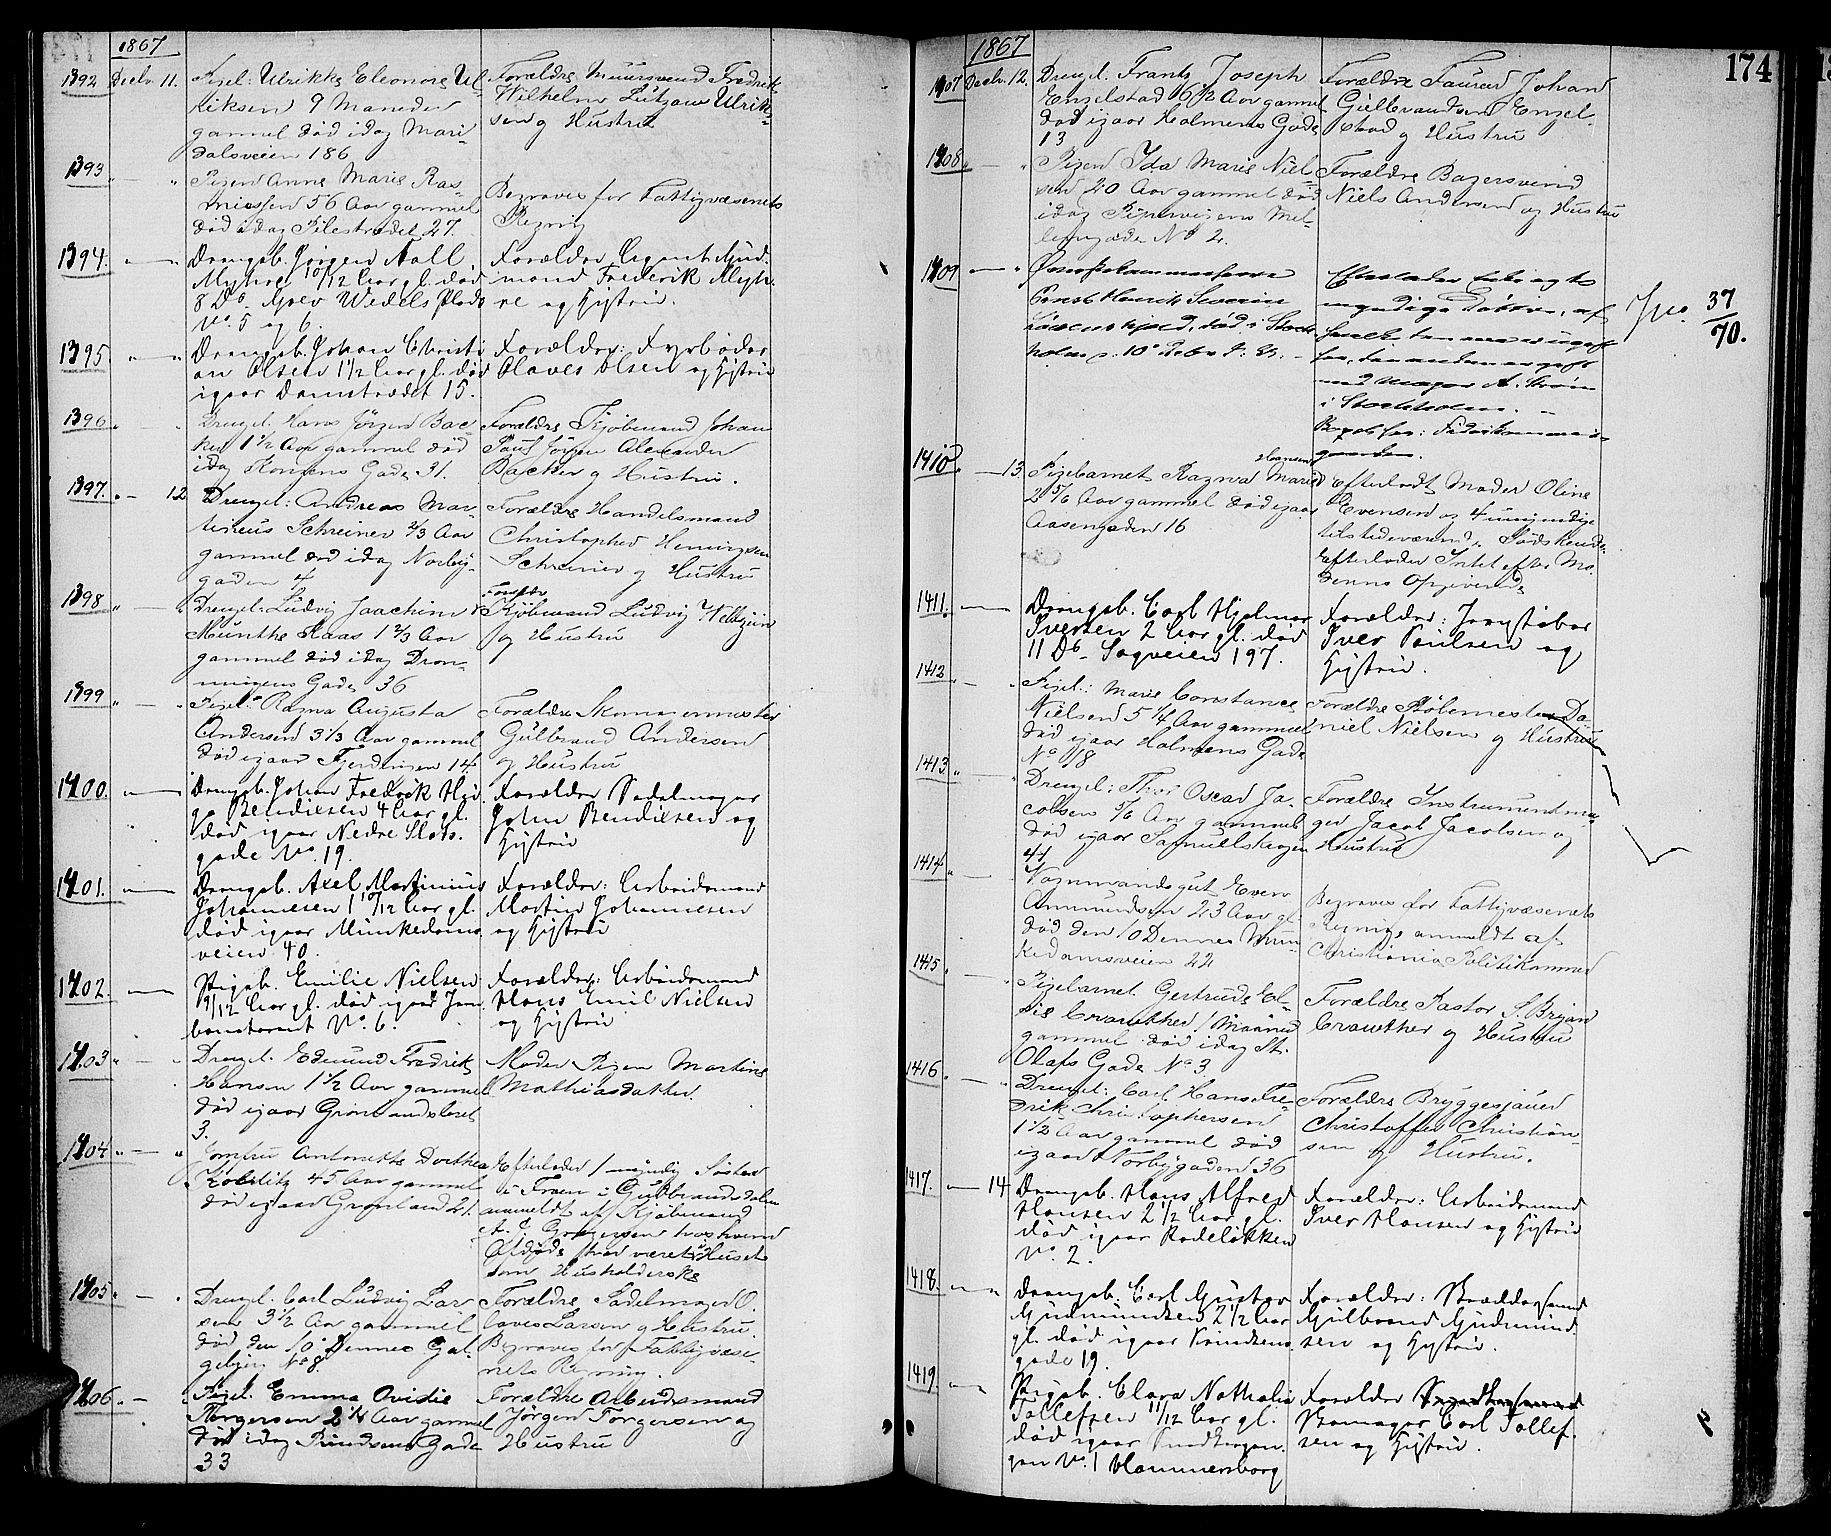 1867
1392 Decbr. 11. Pigeb: Ulrikke Eleonore Ul-
riksen 9 Maaneder
gammel død idag Mari
dalsveien 186
Forældre Muursvend Fredrik
Wilhelm Lützow Ulrik-
sen og Hustru
1393 Pigen Anne Marie Ras-
mussen 56 Aar gammel
død idag Pilestrædet 27.
Begraves for Fattigvæsenets
Regnig
1394. Drengeb. Jørgen Aall
Myhre 10/12 Aar gl. død
8 Ds. Grev Wedels Plads
No. 5 og 6.
Forældre Agent Gud-
mand Frederik Myh-
re og Hustru.
1395 Drengeb. Johan Christi
an Olsen 1 1/2 Aar gl. død
igaar Damstrædet 15.
Forældre: Fyrbøder
Olaves Olsen og Hustru
1396 Drengeb. Hans Jörgen Bac-
ker 1 1/2 Aar gammel død
idag Kongens Gade 31.
Forældre Kjøbmand Johan
Paul Jörgen Alexander
Backer og Hustru.
1397. 12 Drengeb: Andreas Mar-
tinius Schreiner 2/3 Aar
gammel død idag Norby-
gaden 4
Forældre Handelsmand
Christopher Henningsen
Schreiner og Hustru
1398 Drengeb: Ludvig Joachim
Munthe Kaas 1 2/3 Aar
gammel død idag Dron-
ningens Gade 36
Forældre
Kjøbmand Ludvig
og Hustru
1399 Pigeb. Ragna Augusta
Andersen 3 1/3 Aar gammel
død igaar Fjerdingen 14.
Forældre Skomagermester
Gulbrand Andersen
og Hustru
1400. Drengeb. Johan Fredrik Hu-
go Bendixsen 4 Aar gl.
død igaar Nedre Slots-
gade No. 19.
Forældre Sadelmager
John Bendixsen og
Hustru
1401. Drengeb. Axel Martinius
Johannesen 1 10/12 Aar gl.
død igaar Munkedams-
veien 40.
Forældre: Arbeidsmand
Martin Johannesen
og Hustru
1402. Pigeb. Emilie Nielsen
9/12 Aar gl. død igaar Jern
banetorvet No. 6.
Forældre: Arbeidsmand
Hans Emil Nielsen
og Hustru
1403 Drengeb. Edmund Fredrik
Hansen 1 1/2 Aar gammel
død igaar Grønlandsleret
3.
Moder Pigen Martine
Mathiasdatter.
1404 Jomfru Antonette Dorthea
Koblitz 45 Aar gammel
død igaar Grønland 21.
Efterlader 1 myndig Søster
i Froen i Gulbrandsdalen
anmeldt af Kjøbmand
A. C. Gregersen hos hvem
Afdøde har været i Huset
som Husholderske
1405 Drengeb. Carl Ludvig Lar
sen 3 1/2 Aar gammel
død den 10 Dennes Gal-
geberg No 8.
Forældre Sadelmager O-
laves Larsen og Hustru.
Begraves for Fattigvæse-
nets Regning.
1406. Pigeb. Emma Ovidie
Torgersen 2 1/4 Aar gammel
død idag Rundsens Gade
33
Forældre Arbeidsmand
Jørgen Torgersen og
Hustru
1867
174
1407 Decbr. 12. Drengeb. Frantz Joseph
Engelstad 6 1/2 Aar gammel
død igaar Holmens Gade
13
Forældre Faurer Johan
Gulbrandsen Engel-
stad og Hustru
1408 Pigen Ida Marie Niel-
sen 20 Aar gammel død
idag Pipervigens Mel-
lemgade No 2.
Forældre Bagersvend
Niels Andersen og Hustru
1409
Ernst Henrik Severin
Løvenskjold, død i Stock-
holm d. 10 Decbr d. A.
Efterlader Enke og to
myndige Døttre, af
hvilke den ene er ugift
den anden er gift
med Major A. Brøm
i Stockholm.
37/70.
1410 13. Pigebarnet Ragna Marie Hansen
2 5/6 Aar gammel død igaar
Aasengaden 16
Efterladt Moder Oline
Evensen og 4 umyndige
tilstedeværende Sødskende.
Efterlader Intet efter Mo-
derens Opgivende
1411. Drengeb. Carl Hjalmar
Iversen 2 Aar gl. død
11 Ds. Sagveien 197.
Forældre: Jernstøber
Iver Paulsen og
Hustru.
1412 Pigeb.: Marie Constance
Nielsen 5 1/4 Aar gammel
død igaar Holmens Gade
No 18
Forældre Støbemester Da-
niel Nielsen og Hustru
1413 Drengeb: Thor Oscar Ja-
cobsen 5/6 Aar gammel
død igaar Samuelskrogen
41
Forældre Instrumentma-
ger Jacob Jacobsen og
Hustru
1414 Vognmandsgut Even
Ammundsen 23 Aar gl.
død den 10 Dennes Mun
kedamsveien 22
Begraves for Fattigvæsenets
Regning anmeldt af
Christiania Politikammer
1415 Pigebarnet Gertrude El-
sie Crawther 1 Maaned
gammel død idag St.
Olafs Gade No 3
Forældre Pastor S. Bryan
Crawther og Hustru
1416 Drengeb: Carl Hans Fre-
drik Christophersen
1 1/2 Aar gammel død
igaar Norbygaden 36
Forældre Bryggesjauer
Christoffer Christian-
sen og Hustru.
1417. 14 Drengeb. Hans Alfred
Hansen 2 1/2 Aar gl.
død igaar Rodeløkken
No. 2.
Forældre: Arbeidsmand
Iver Hansen og Hustru
1418. Drengeb. Carl Gustav
Gudmundsen 2 1/2 Aar
gl. død igaar Rundsens
gade 19.
Forældre: Skræddersvend
Gulbrand Gudmund-
sen og Hustru.
1419 Pigeb. Clara Nathalie
Tollefsen 11/12 Aar gl.
død igaar Smedkrogen
No. 1 Hammersborg
Forældre
Skomager Carl Tollef-
sen og Hustru.